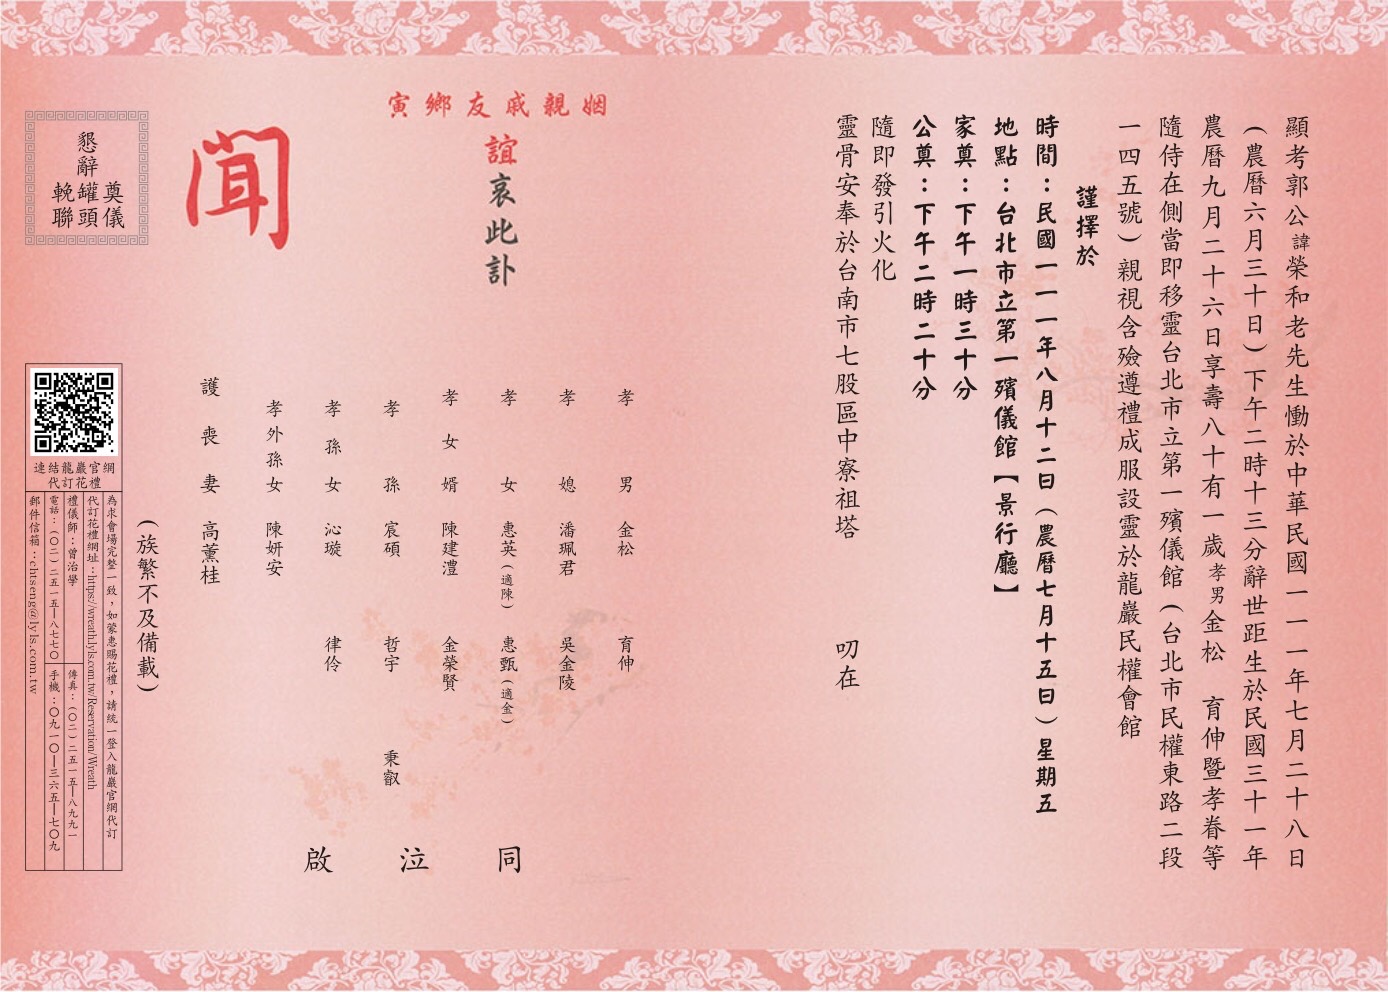 顯考郭公諱榮和老先生慟於中華民國一一一年七月二十八日
(農曆六月三十日)下午二時十三分辭世距生於民國三十一年
農曆九月二十六日享壽八十有一歲孝男金松 育伸暨孝眷等
隨侍在側當即移靈台北市立第一殯儀館(台北市民權東路二段
一四五號)親視含殮遵禮成服設靈於龍巖民權會館
謹擇於
時間:民國一一一年八月十二日(農曆七月十五日)星期五
地點:台北市立第一殯儀館【景行廳】
家奠:下午一時三十分
公奠:下午二時二十分
隨即發引火化
靈骨安奉於台南市七股區中寮祖塔 叨在
姻親戚友鄉寅
誼哀此訃
聞
孝男 金松 育伸
孝媳 潘珮君 吳金陵
孝女 惠英(適陳) 惠甄(適金)
孝女婿 陳建澧 金榮賢
孝孫 宸碩 哲宇 秉叡
孝孫女 沁璇 律伶
孝外孫女 陳妍安
護喪妻 高薰桂
同泣啟
(族繁不及備載)
懇辭
奠儀
罐頭
輓聯
連結龍巖官網
代訂花禮
為求會場完整一致,如蒙惠賜花禮,請統一登入龍巖官網代訂
代訂花禮網址:https://wreath.lyls.com.tw/Reservation/Wreath
禮儀師:曾治學 傳真:(〇二)二五一五—八九九一
電話:(〇二)二五一五—八七七〇 手機:〇九一〇—三六五—七〇九
郵件信箱:chtseng@lyls.com.tw